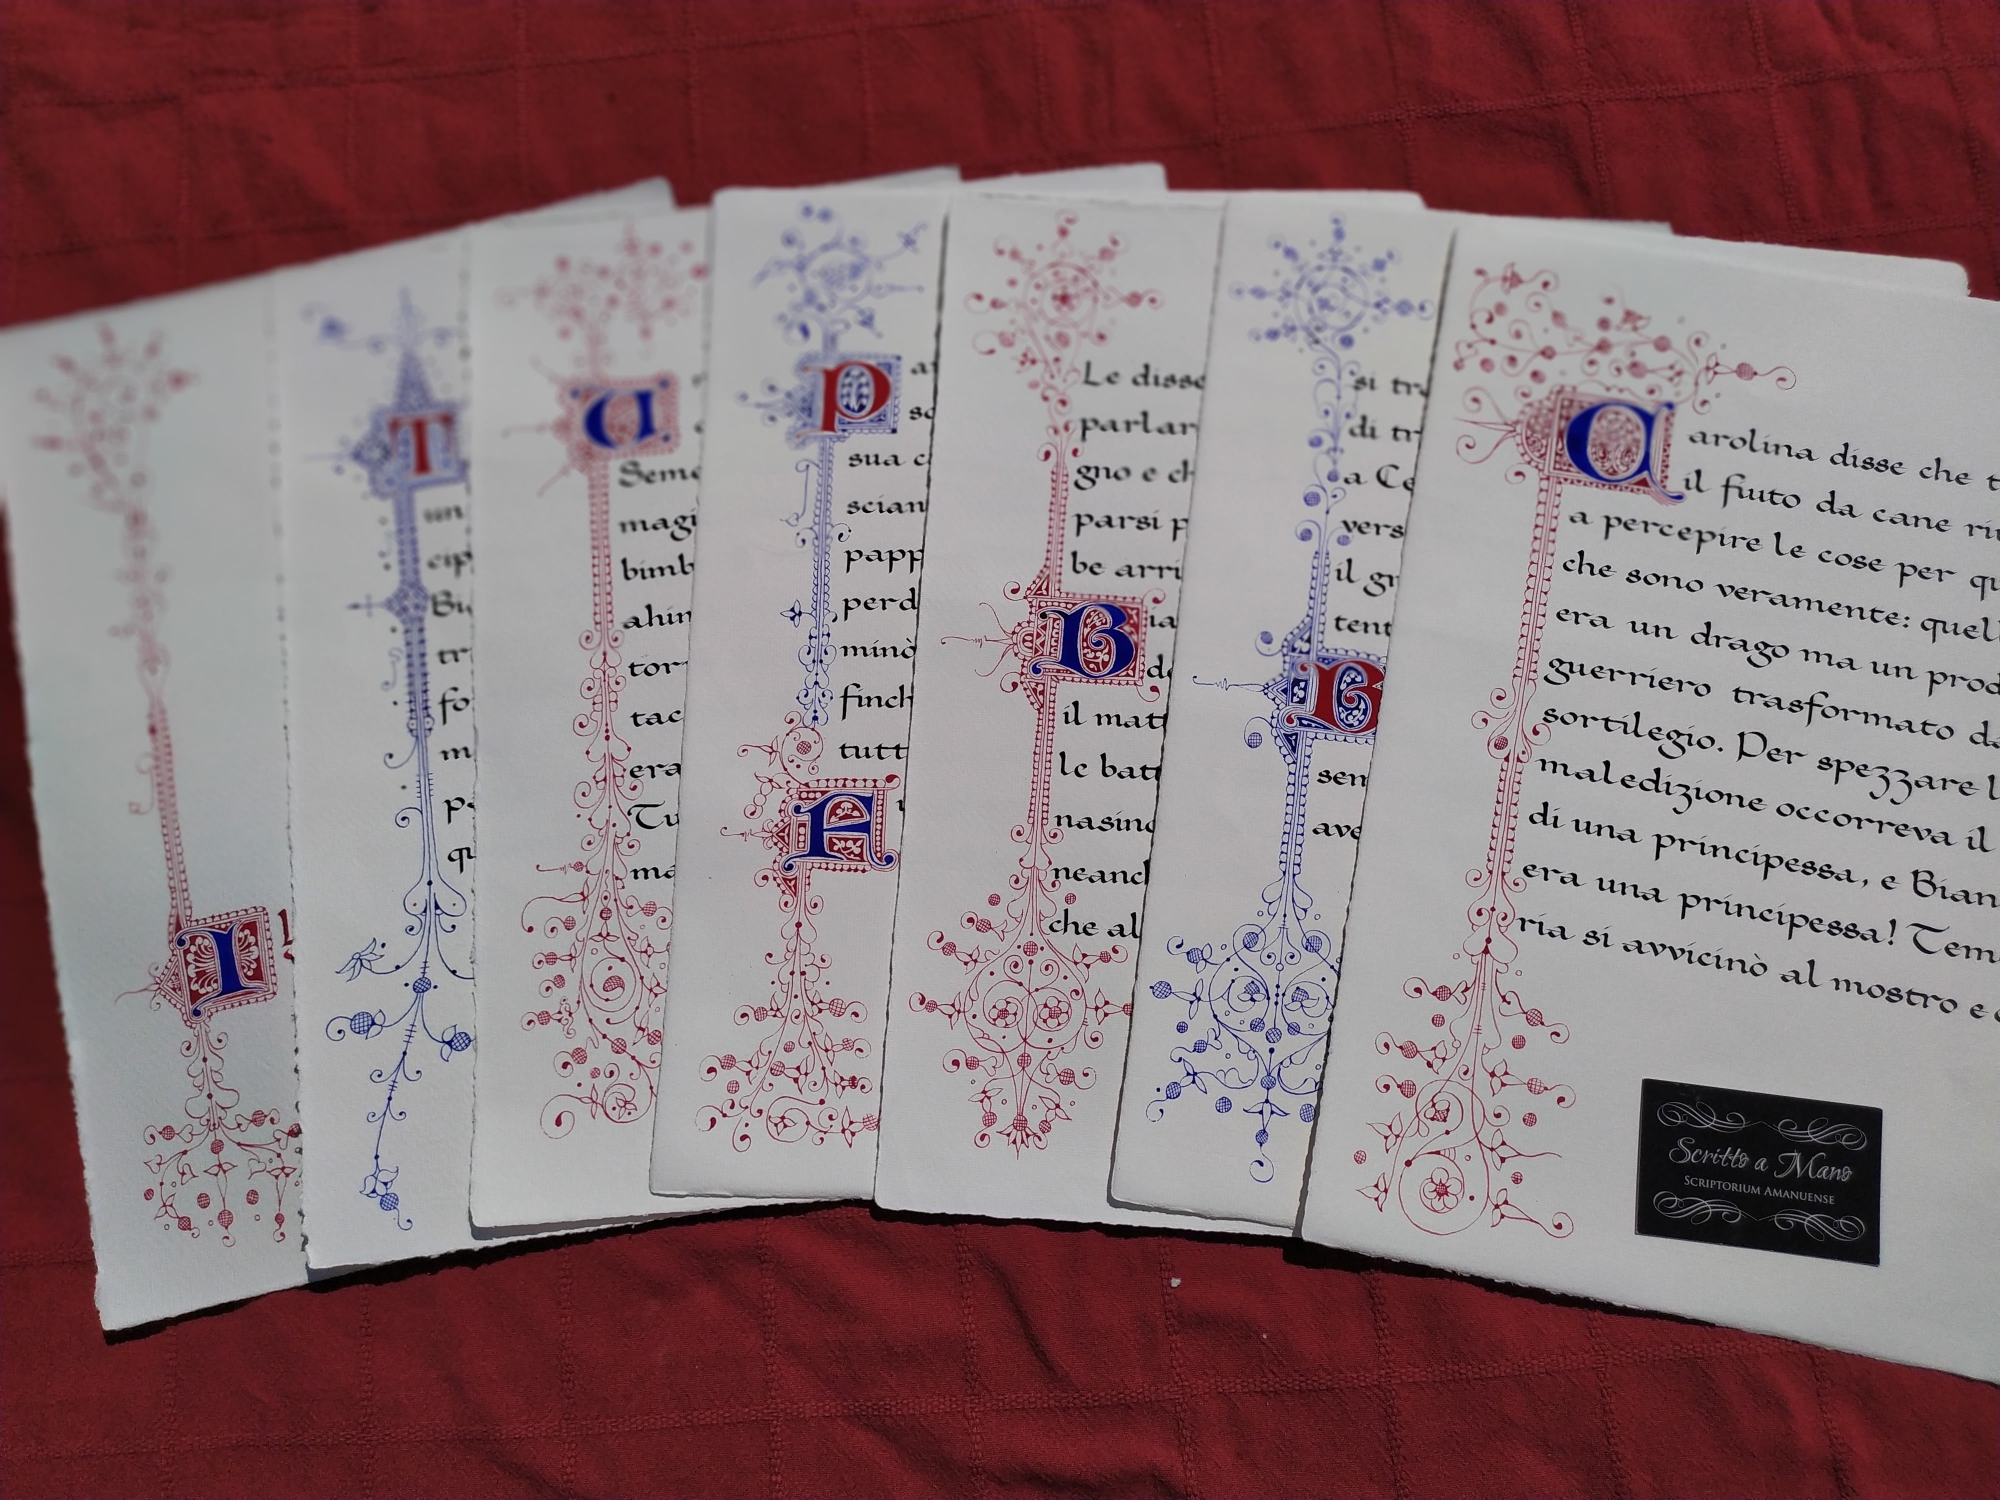 I
T
un
cip
Bu
tr
fo
m
pe
qu
U
Seme
magi
bimb
ahim
torr
tac
era
Tu
ma
P
at
so
sua c
scian
papp
perd
minò
finch
tutt
A
Le disse
parlar
gno e ch
parsi p
be arri
B
ia
de
il matt
le batt
nasino
neanch
che al
si tra
di tr
a Ce
vers
il gr
tent
B
sem
ave
Carolina disse che t
il fiuto da cane riu
a percepire le cose per qu
che sono veramente: quell
era un drago ma un prod
guerriero trasformato da
sortilegio. Per spezzare l
maledizione occorreva il
di una principessa, e Bian
era una principessa! Tem
ria si avvicinò al mostro e
Scritto a Mano
SCRIPTORIUM AMANUENSE